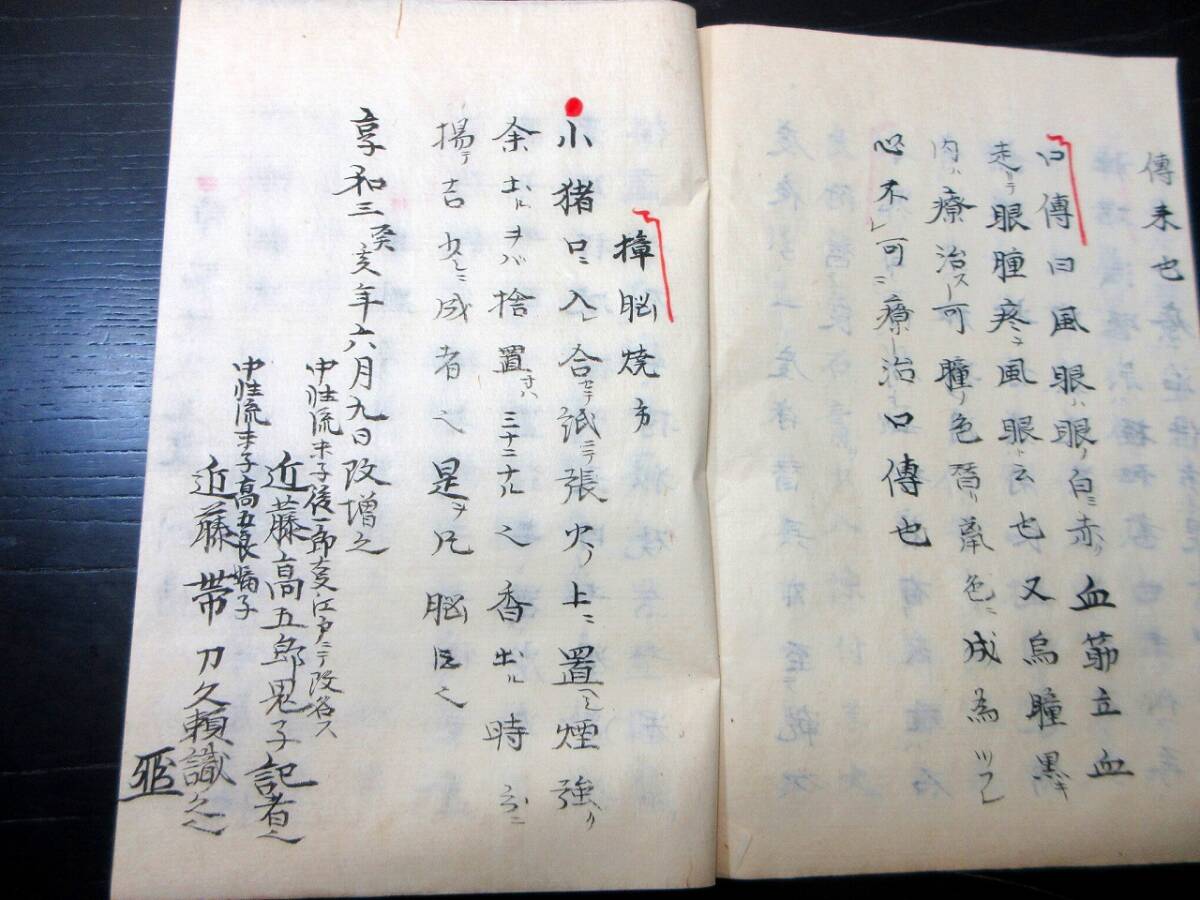 傳来也
口傳曰風眼ハ眼ノ白ミ赤ク血筋立血
走リテ眼腫疼ヲ風眼ト云也又烏瞳黒キ
内ハ療治スー可瞳ノ色替リ藥色ニ成為ツフレ
必不レ可ニ療ー治口傳也
樟脳焼方
小猪口ニ入レ合セテ紙ニテ張火ノ上ニ置ヘシ煙強ク
余出ルヲバ捨置ナハ三十ニナル之香出ル時ニ
揚テ吉少シニ成者之是ヲ凡脳ト之
享和三癸亥年六月九日改増之
中性流末子後一郎亥江戸ニテ改名ス
近藤高五郎忠子記者之
中性流末子高五良嫡子
近藤帯刀久頼識久之